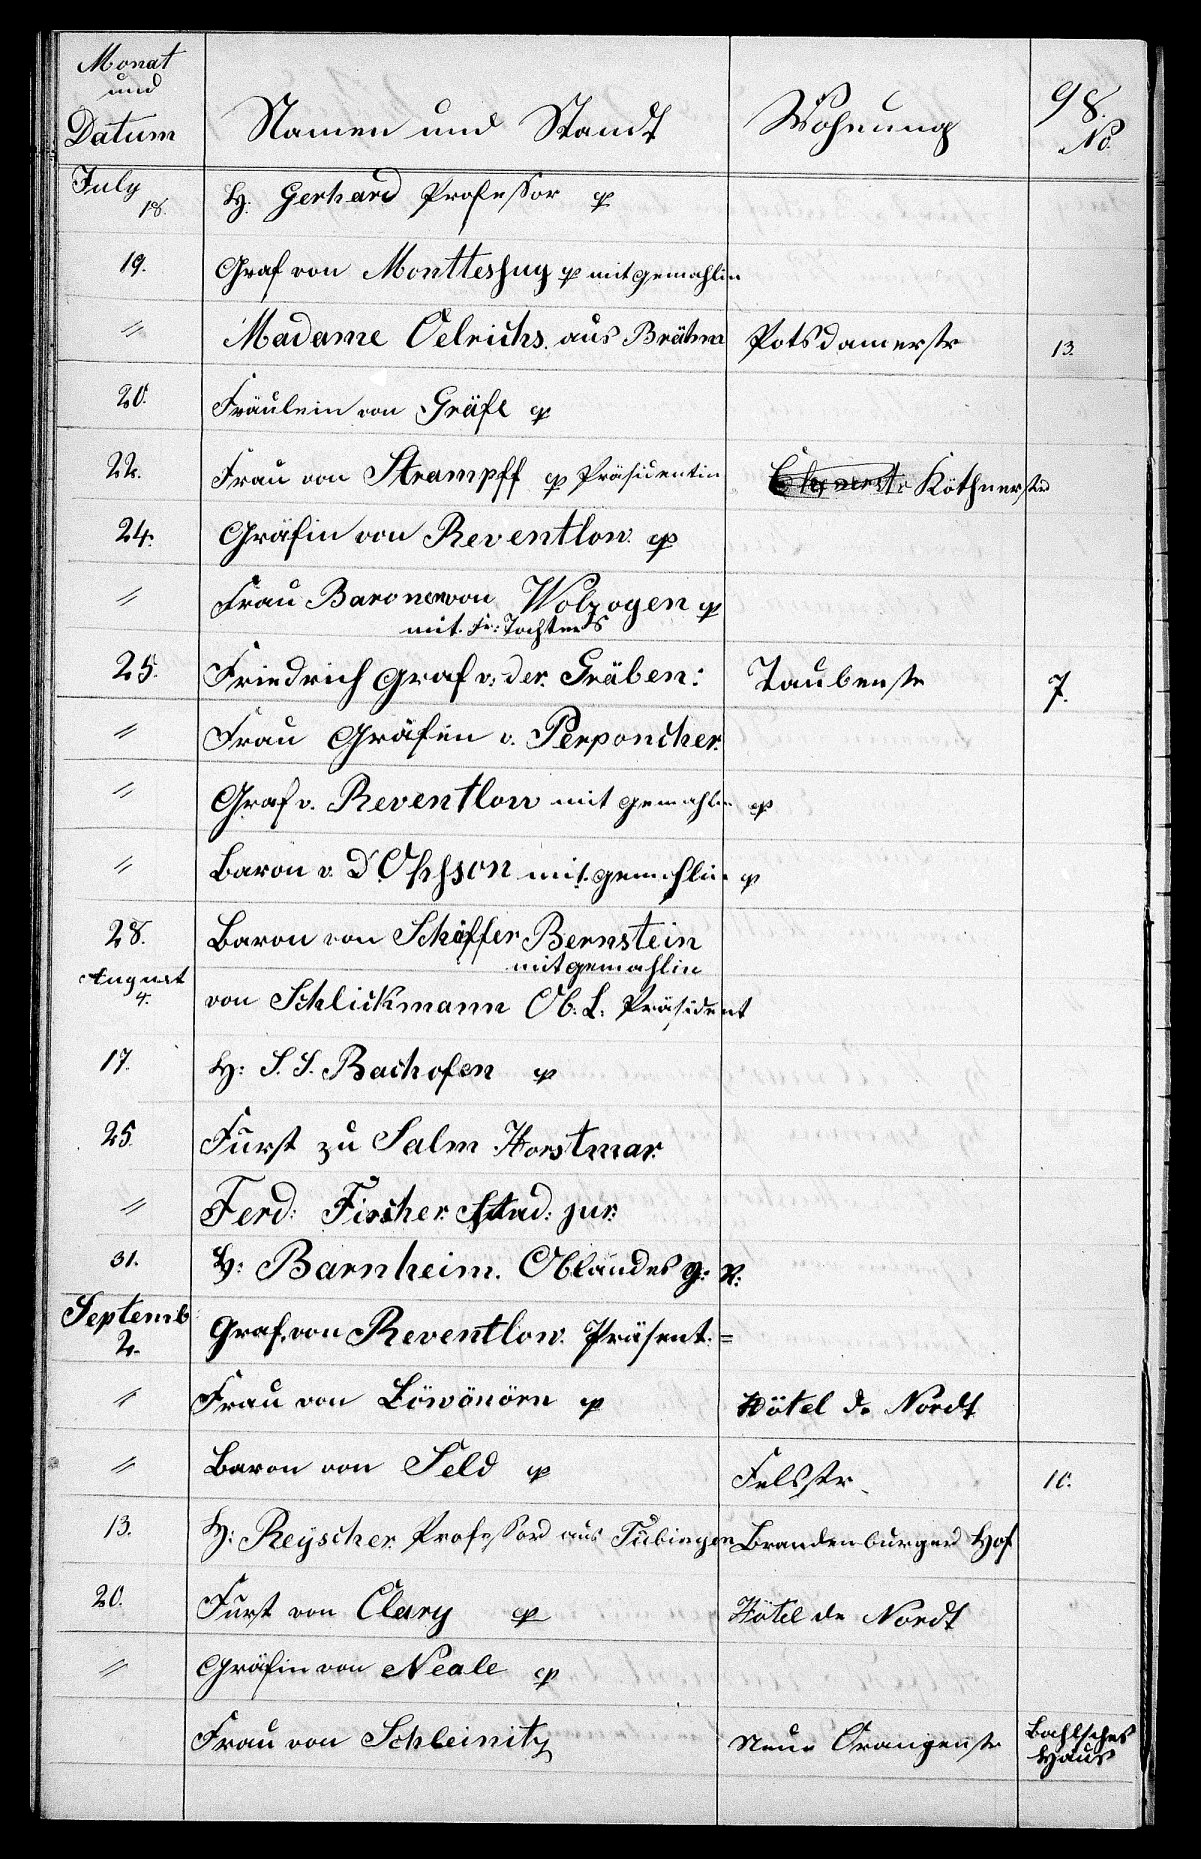 Monat
und
Datum
Namen und Standt
Wohnung
98.
No.
July
18.
H: Gerhard Professor p
19.
Graf von Monttesquy p mit gemahlin
〃
Madame Oelrichs. aus Brähm
Potsdamerstr
13.
20.
Fräulein von Gräfe p
22.
Frau von Strampff p Präsidentin
Köthnerstr
24.
Gräfin von Reventlow. p
〃
Frau Baronen von Wolzogen p
mit. Fr: Tochters
25.
Friedrich Graf v: der. Gräben:
Taubenstr
7.
〃
Frau Gräfin v. Perponcher.
〃
Graf v. Reventlow mit gemahlin p
〃
Baron v. D'Ohsson mit gemahlin p
28.
Baron von Schäffer Bernstein
mit gemahlin
August
4.
von Schlickmann Ob. L: Präsident
17.
H: J. J. Bachofen p
25.
Fürst zu Salm Horstmar.
〃
Ferd: Fischer. Stud: jur:
31.
H: Barnheim. Oblandes g: R:
Septemb
2.
Graf. von Reventlow. Präsent. =
〃
Frau von Löwönörn p
Hôtel de Nordt
〃
Baron von Seld p
Felsstr.
10.
13.
H: Reÿscher. Professor aus Tübingen
Brandenburger Hof
20.
Fürst von Clary p
Hôtel de Nordt
〃
Gräfin von Neale p
Frau von Schleinitz
Neue Orangenstr
Bahlsches
Haus